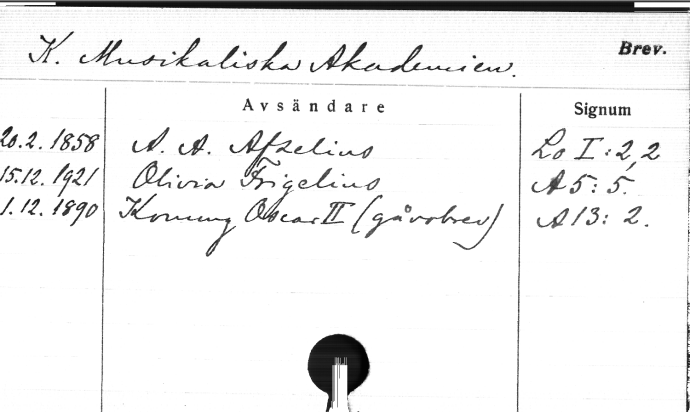 K. Musikaliska Akademien. Brev.
Avsändare Signum
20.2.1858 A. A. Afzelius Lo I:2,2
15.12.1921 Olivia Frigelius A5:5.
1.12.1890 Konung Oscar II (gåvobrev) A13:2.